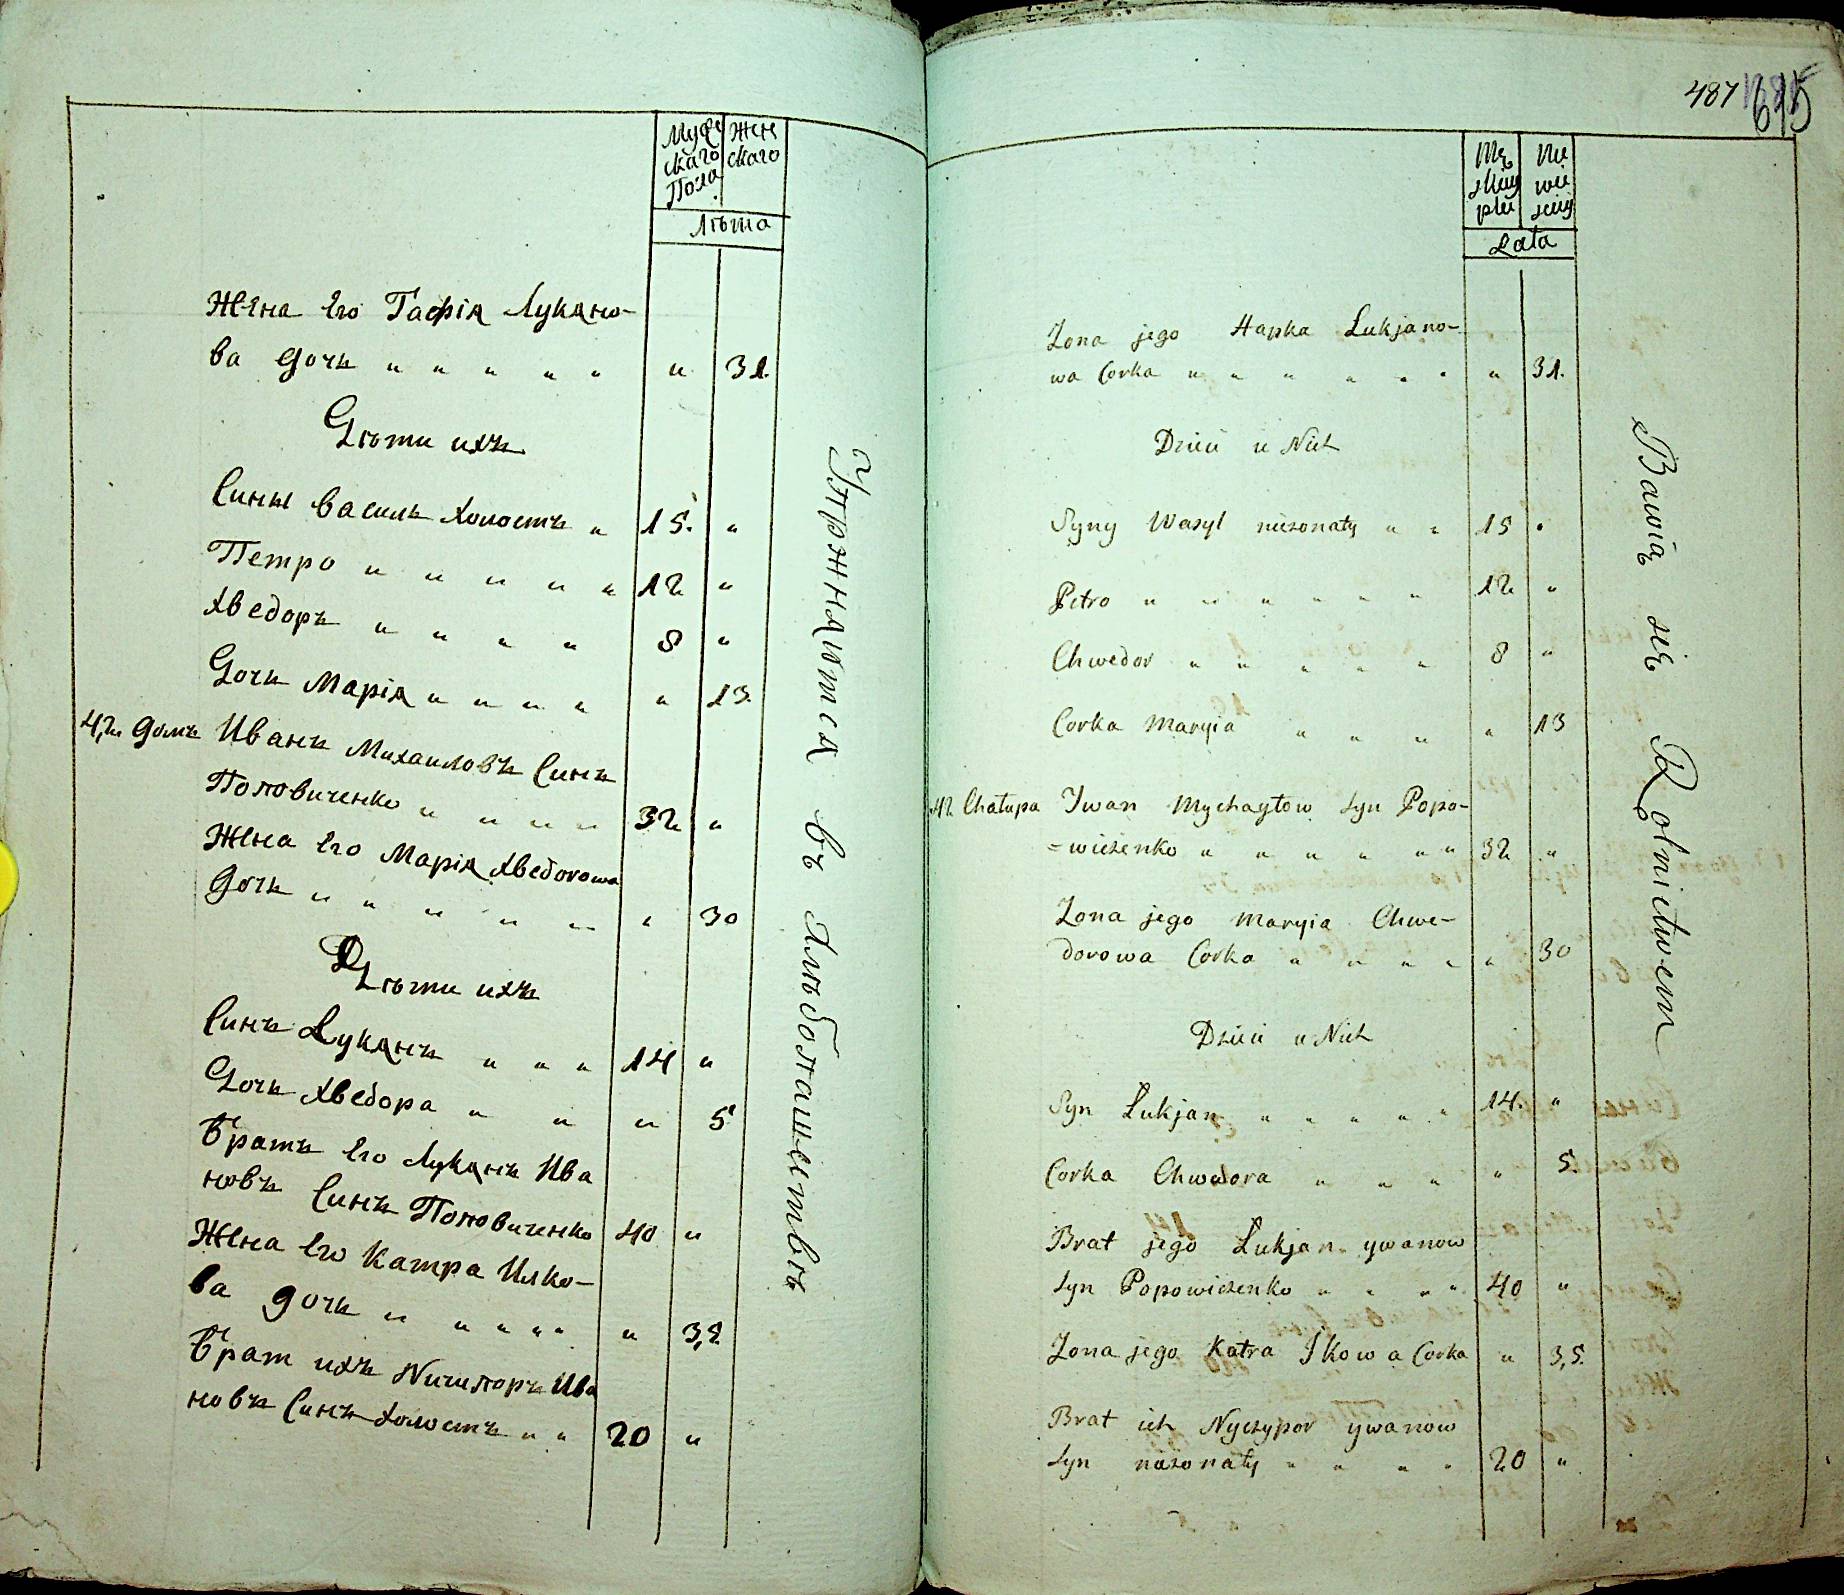 Мужескаго Пола
Женскаго
лѣта
Жена Его Гафія Лукано-
ва Дочь " " " " " " 31.
Дѣти ихъ
Сины Василь Холостъ " 15. "
Петро " " " " " 12 "
Хведоръ " " " " 8 "
Дочь Марія " " " " " 13.
42. Домъ Иванъ Михаиловъ Синъ
Поповиченко " " " " 32 "
Жена Его Марія Хведorowa
Дочь " " " " " " 30
Дѣти ихъ
Синъ Луканъ " " " 14 "
Дочь Хведора " " " 5
Братъ Его Луканъ Ива
новъ Синъ Поповиченко 40 "
Жена Его Катра Илко-
ва Дочь " " " " " " 35.
Брат ихъ Ničипоръ Ива
новъ Синъ Холостъ " " 20 "
Упражняются въ Хлѣбопашествѣ
487
615
Męskiey płci
Niewieściey
Lata
Zona jego Hapka Łukjano-
wa Corka " " " " " " " 31.
Dzieci u Nich
Syny Wasyl niezonaty " " 15 "
Petro " " " " " " 12 "
Chwedor " " " " " 8 "
Corka Maryia " " " " 13
42 Chałupa Jwan Mychayłow Syn Popo-
=wiczenko " " " " " " 32 "
Zona jego Maryia Chwe-
dorowa Corka " " " " " 30
Dzieci u Nich
Syn Łukjan " " " " " 14. "
Corka Chwedora " " " " 5.
Brat jego Łukjan ywanow
Syn Popowiczenko " " " " 40 "
Zona jego Katra Jkowa Corka " 3,5.
Brat ich Nyczypor ywanow
Syn niezonaty " " " " 20 "
Bawią się Rolnictwem